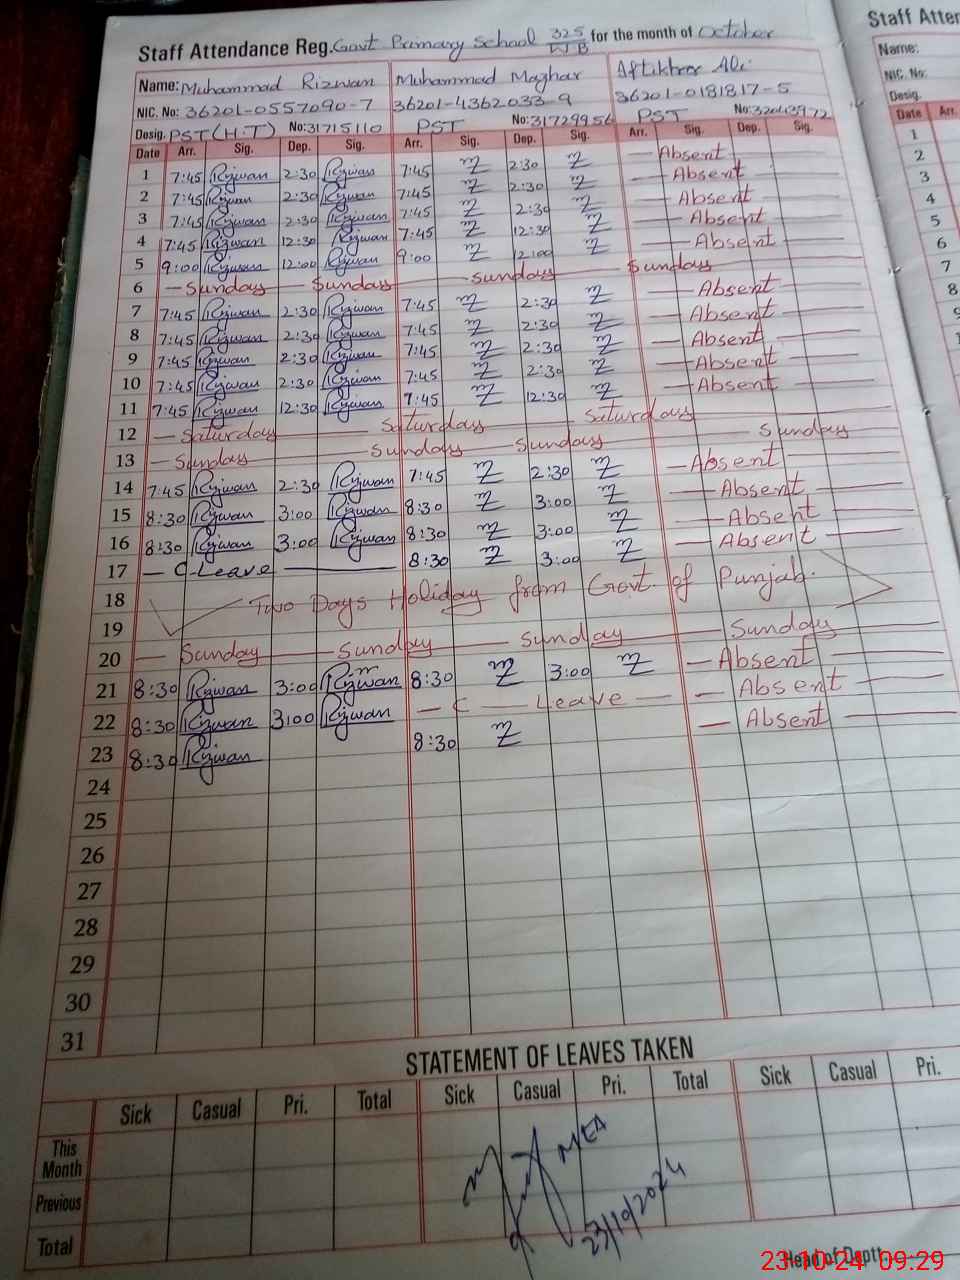 Staff Attendance Reg. Govt Primary School 325/WB for the month of October
Name: Muhammad Rizwan Muhammad Maghar Aftikhar Ali
NIC. No: 36201-0557090-7 36201-4362033-9 36201-0181817-5
Desig. PST (H.T) No: 31715110 PST No: 31729956 PST No:
Date Arr. Sig. Dep. Sig. Arr. Sig. Dep. Sig. Arr. Sig. Dep. Sig.
1 7:45 Rizwan 2:30 Rizwan 7:45 2:30 Absent
2 7:45 Rizwan 2:30 Rizwan 7:45 2:30 Absent
3 7:45 Rizwan 2:30 Rizwan 7:45 2:30 Absent
4 7:45 Rizwan 12:30 Rizwan 7:45 12:30 Absent
5 9:00 Rizwan 12:00 Rizwan 9:00 12:00 Absent
6 Sunday Sunday Sunday Sunday
7 7:45 Rizwan 2:30 Rizwan 7:45 2:30 Absent
8 7:45 Rizwan 2:30 Rizwan 7:45 2:30 Absent
9 7:45 Rizwan 2:30 Rizwan 7:45 2:30 Absent
10 7:45 Rizwan 2:30 Rizwan 7:45 2:30 Absent
11 7:45 Rizwan 12:30 Rizwan 7:45 12:30 Absent
12 Saturday Saturday Saturday
13 Sunday Sunday Sunday Sunday
14 7:45 Rizwan 2:30 Rizwan 7:45 2:30 Absent
15 8:30 Rizwan 3:00 Rizwan 8:30 3:00 Absent
16 8:30 Rizwan 3:00 Rizwan 8:30 3:00 Absent
17 C-Leave 8:30 3:00 Absent
18 Two Days Holiday from Govt. of Punjab.
19
20 Sunday Sunday Sunday Sunday
21 8:30 Rizwan 3:00 Rizwan 8:30 3:00 Absent
22 8:30 Rizwan 3:00 Rizwan C Leave Absent
23 8:30 Rizwan 8:30 Absent
24
25
26
27
28
29
30
31
STATEMENT OF LEAVES TAKEN
Sick Casual Pri. Total Sick Casual Pri. Total Sick Casual Pri.
This Month
Previous
Total
MEA
23/10/2024
Head of Deptt.
23-10-24 09:29
Staff Atten
Name:
NIC. No:
Desig.
Date Arr.
1
2
3
4
5
6
7
8